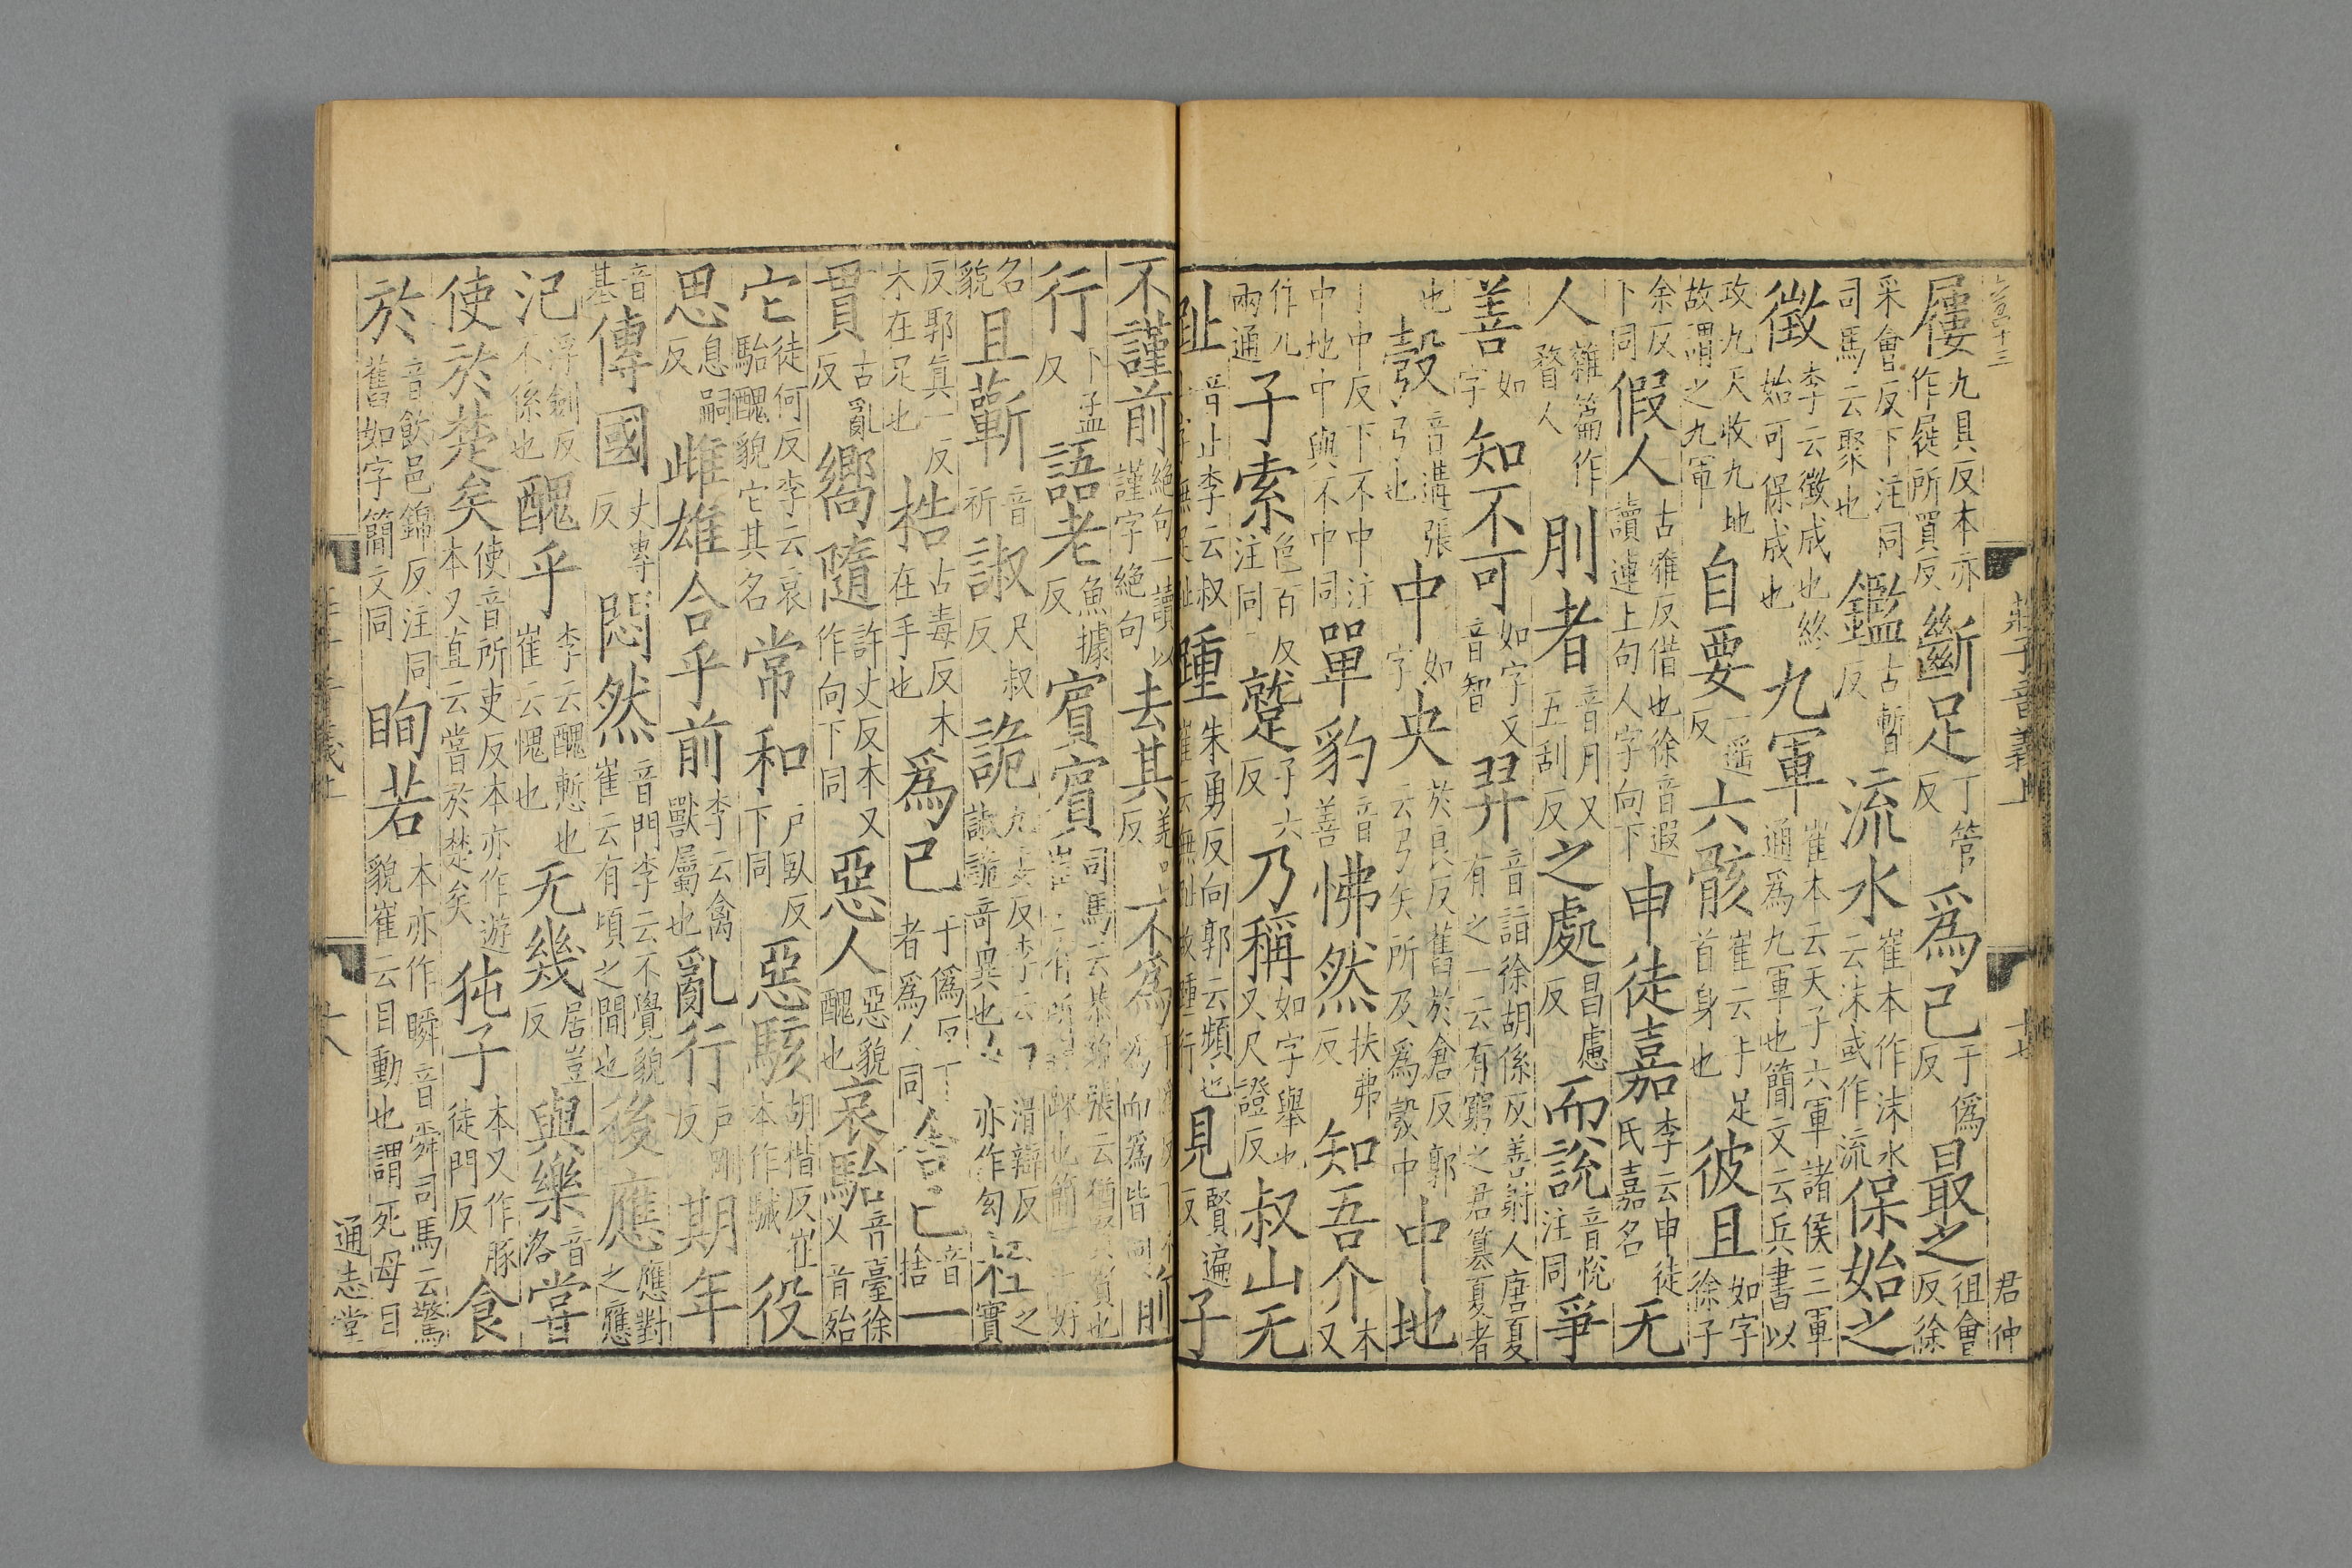 莊子音義上 十七 君仲
屨九具反本亦作屐所買反斷足丁管反爲已于偽反最之徂會反徐
采會反下注同司馬云聚也鑑古暫反流水崔本作沬水云沬或作流保始之
徵李云徵成也終始可保成也九軍崔本云天子六軍諸侯三軍通爲九軍也簡文云兵書以
攻九天收九地故謂之九軍自要一遥反六骸崔云手足首身也彼且如字徐子
余反下同假人古雅反借也徐音遐讀連上句人字向下申徒嘉李云申徒氏嘉名无
人雜篇作瞀人刖者音月又五刮反之處昌慮反而說音悅注同爭
善如字知不可如字又音智羿音詣徐胡係反善射人唐夏有之一云有窮之君簒夏者
也彀音遘張弓也中如字央於良反舊於倉反郭云弓矢所及爲彀中中地
丁中反下不中注中地中與不中同單豹音善怫然扶弗反知吾介本又
作兀兩通子索色百反注同蹵子六反乃稱如字舉也又尺證反叔山无
趾音止李云叔無足趾踵朱勇反向郭云頻也崔云無趾故踵行見賢遍反子
不謹前絶句一讀以謹字絶句去其羌呂反不爲爲而爲皆同前
行下孟反語老魚據反賓賓司馬云恭貌張云猶賢賢也崔云有所親疎也簡文云好
名貌且蘄音祈諔尺叔反詭九委反李云諔詭奇異也幻滑辯反亦作幻桎之實
反郭真一反木在足也梏古毒反木在手也爲已于僞反者爲人同舍已音捨一
貫古亂反嚮隨許丈反本又作向下同惡人惡貌醜也哀駘音臺徐又音殆
它徒何反李云哀駘醜貌它其名常和戶臥反下同惡駭胡楷反崔本作駴役
思息嗣反雌雄合乎前李云禽獸屬也亂行戶剛反期年
音基傳國丈專反悶然音門李云不覺貌崔云有頃之間也後應應對之應
氾浮劒反不係也醜乎李云醜慙也崔云愧也无幾居豈反與樂音洛嘗
使於楚矣使音所吏反本亦作遊本又直云嘗於楚矣㹠子本又作豚徒門反食
於音飲邑錦反注同舊如字簡文同眴若本亦作瞬音舜司馬云驚貌崔云目動也謂死母目
十八 通志堂